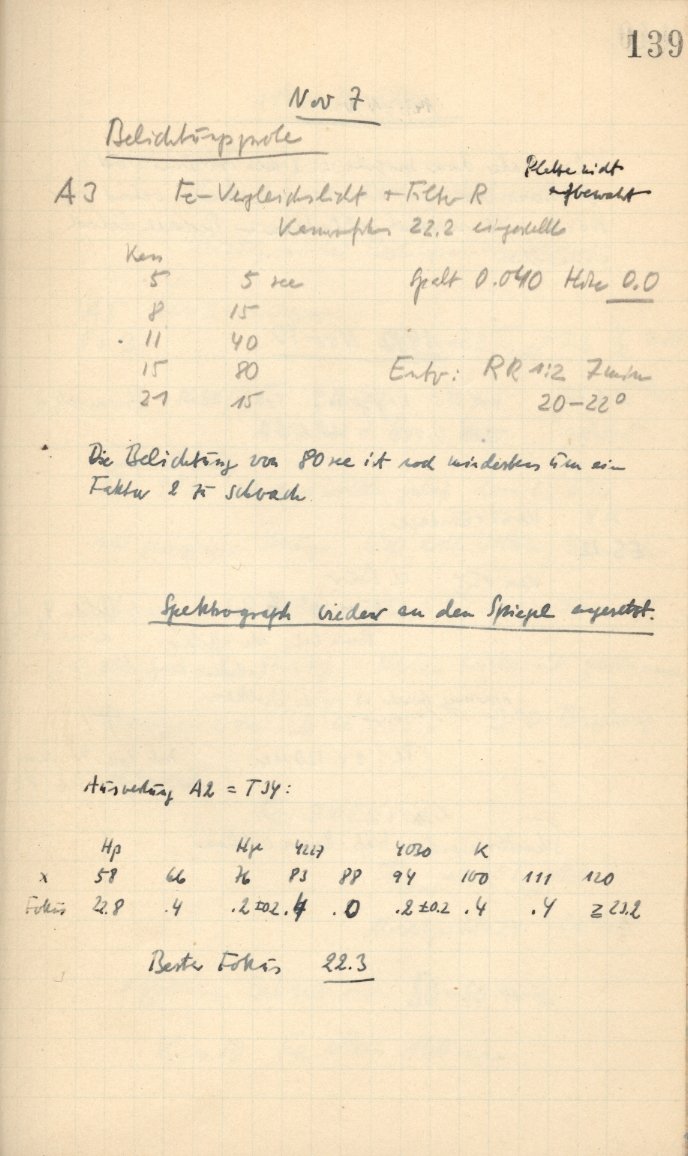 139
Nov 7
Belichtungsprobe
Platte nicht
aufbewahrt
A3 Fe-Vergleichslicht + Filter R
Kamerafokus 22.2 eingestellt
Kass
5 5 sec Spalt 0.040 Höhe 0.0
8 15
11 40
15 80 Entw: RR 1:2 7min
21 15 20-22°
Die Belichtung von 80 sec ist noch mindestens um ein
Faktor 2 zu schwach
Spektrograph wieder an den Spiegel angesetzt.
Auswertung A2 = T34:
Hβ Hγ 4227 4030 K
x 58 66 76 83 88 94 100 111 120
Fokus 22.8 .4 .2±0.2 .4 .0 .2±0.2 .4 .4 ≥23.2
Bester Fokus 22.3